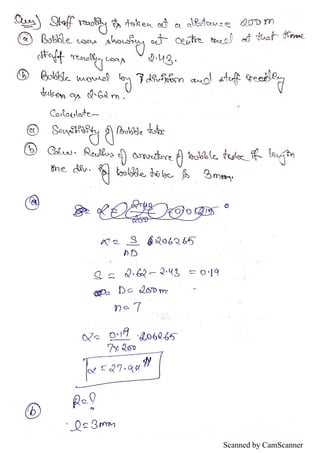 Ques) Staff reading is taken at a distance 200m
(a) Bubble was showing at centre and at that time
staff reading was 2.43.
(b) Bubble moved by 7 division and staff reading
taken as 2.62m.
Calculate-
(a) Sensitivity of Bubble tube
(b) Radius of curvature of bubble tube if length
one div. of bubble tube is 3mm.
(a)
α = S/nD 206265
S = 2.62 - 2.43 = 0.19
D = 200m
n = 7
α = 0.19/7×200 · 206265
α = 27.99"
(b) R = ?
l = 3mm
Scanned by CamScanner